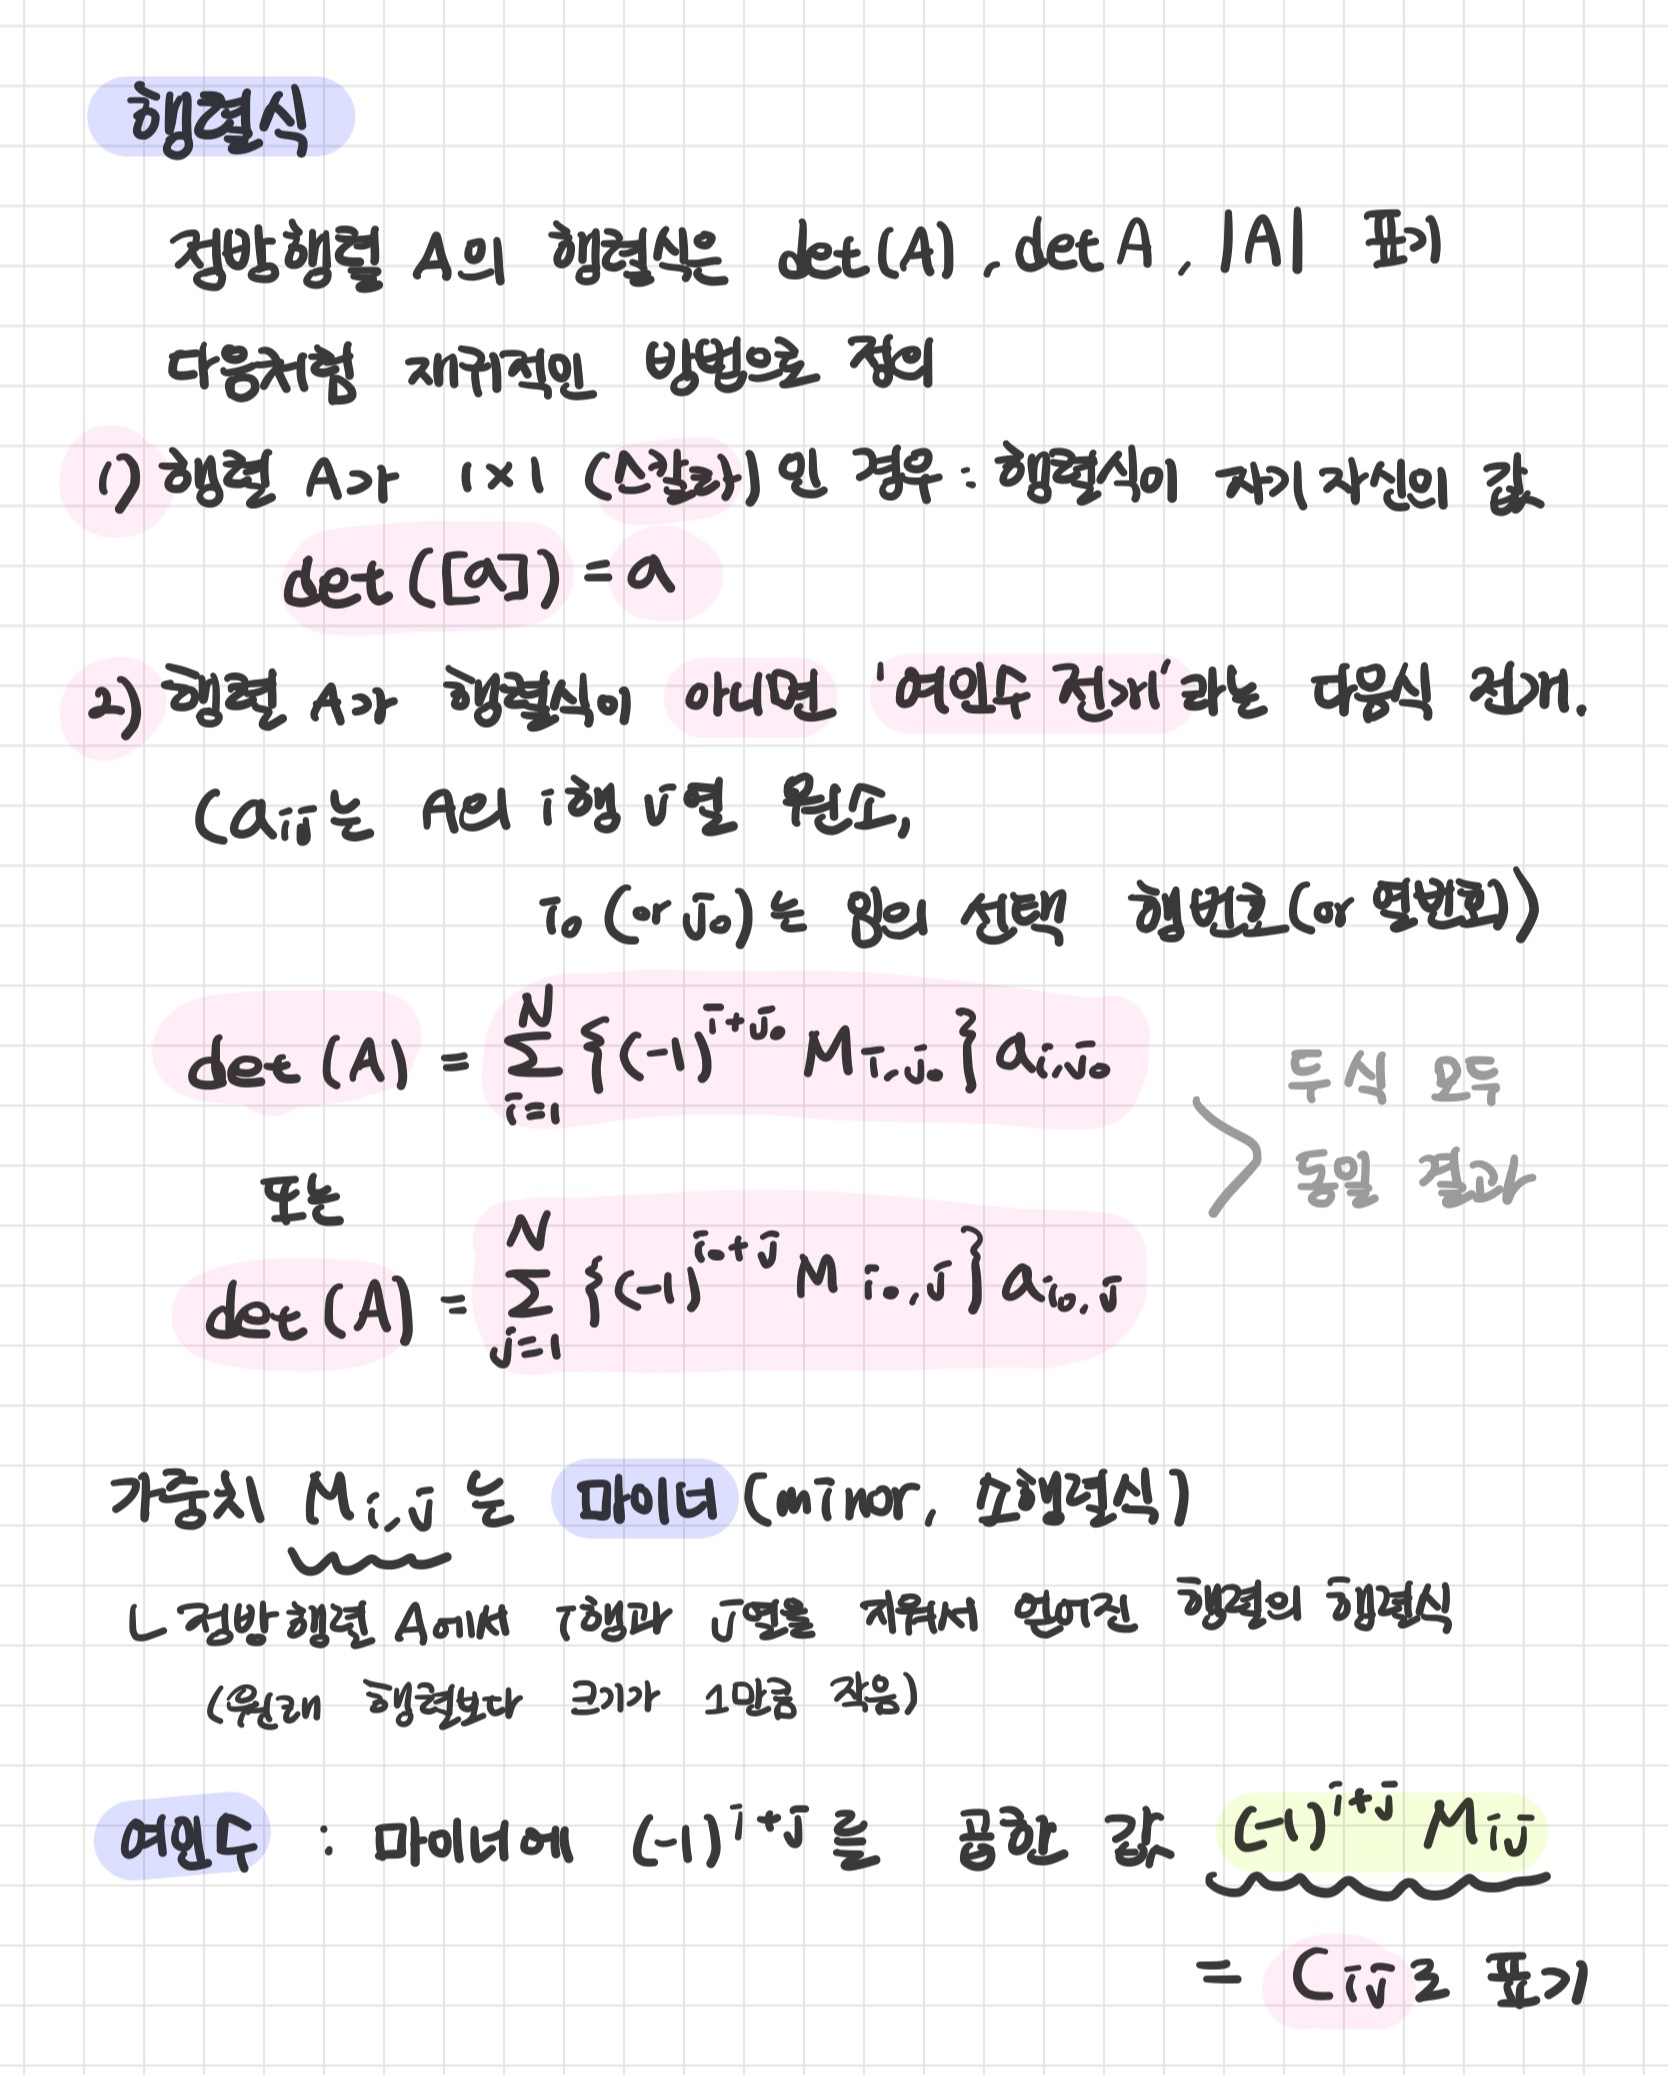 행렬식
정방행렬 A의 행렬식은 det(A), det A, |A| 표기
다음처럼 재귀적인 방법으로 정의
1) 행렬 A가 1×1 (스칼라)인 경우 : 행렬식이 자기 자신의 값
det([a]) = a
2) 행렬 A가 행렬식이 아니면 '여인수 전개'라는 다음식 전개.
(a_{ij}는 A의 i행 j열 원소,
i_0 (or j_0)는 임의 선택 행번호(or 열번호))
det(A) = \sum_{i=1}^{N} {(-1)^{i+j_0} M_{i,j_0}} a_{i,j_0}
두 식 모두
동일 결과
또는
det(A) = \sum_{j=1}^{N} {(-1)^{i_0+j} M_{i_0,j}} a_{i_0,j}
가중치 M_{i,j}는 마이너(minor, 소행렬식)
ㄴ 정방행렬 A에서 i행과 j열을 지워서 얻어진 행렬의 행렬식
(원래 행렬보다 크기가 1만큼 작음)
여인수 : 마이너에 (-1)^{i+j}를 곱한 값 (-1)^{i+j} M_{ij}
= C_{ij}로 표기